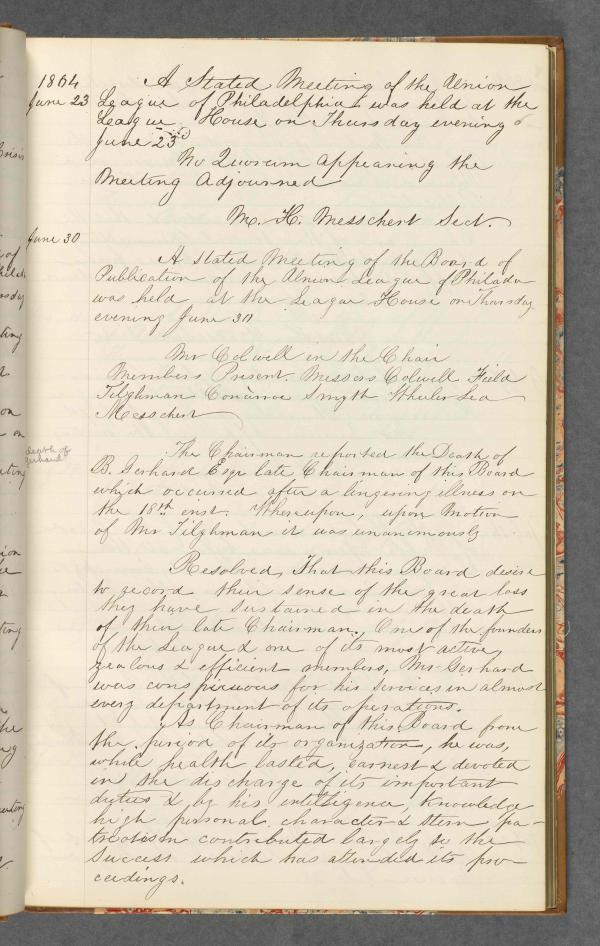 1864
June 23
A Stated Meeting of the Union
League of Philadelphia was held at the
League House on Thursday evening
June 23rd
No Quorum appearing the
Meeting Adjourned
M. H. Messchert Sect.
June 30
A Stated Meeting of the Board of
Publication of the Union League of Philada
was held at the League House on Thursday
evening June 30
Mr Colwell in the Chair
Members Present. Messers Colwell Field
Tilghman Conarroe Smyth Wheeler Lea
Messchert
death of
Gerhard
The Chairman reported the Death of
B. Gerhard Esqr late Chairman of this Board
which occurred after a lingering illness on
the 18th inst. Whereupon, upon Motion
of Mr Tilghman it was unanimously
Resolved, That this Board desire
to record their sense of the great loss
they have sustained in the death
of their late Chairman. One of the founders
of the League & one of its most active,
zealous & efficient members, Mr Gerhard
was conspicuous for his services in almost
every department of its operations.
As Chairman of this Board from
the period of its organization, he was,
while health lasted, earnest & devoted
in the discharge of its important
duties & by his intelligence, knowledge
high personal character & stern pa-
triotism contributed largely to the
success which has attended its pro-
ceedings.